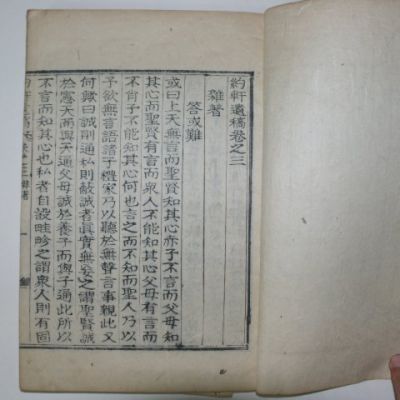 約軒遺稿卷之三
雜著
答或難
或曰上天無言而聖賢知其心赤子不言而父母知
其心而聖賢有言而衆人不能知其心父母有言而
不肖子不能知其心何也言之而不知而聖人乃以
予欲無言語諸子禮家乃以聽於無聲言事親此又
何歟曰誠則通私則蔽誠者眞實無妄之謂聖賢誠
於憲天而與天通父母誠於養子而與子通此所以
不言而知其心也私者自波畦畛之謂衆人則有固
雜著